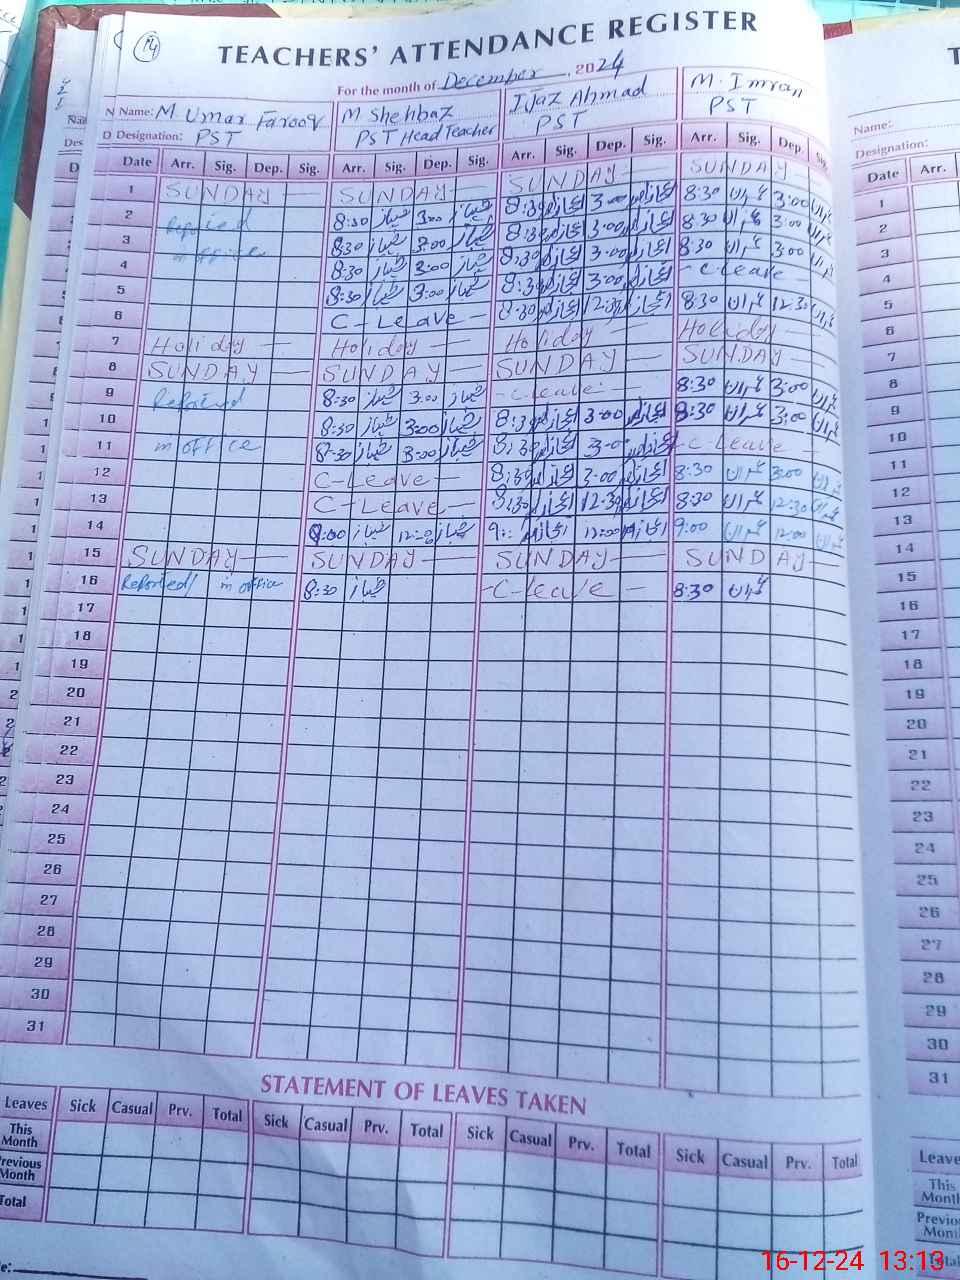 14
TEACHERS' ATTENDANCE REGISTER
For the month of December, 2024
Name: M Umar Farooq M Shehbaz Ijaz Ahmad M. Imran
Designation: PST PST Head Teacher PST PST
Date Arr. Sig. Dep. Sig. Arr. Sig. Dep. Sig. Arr. Sig. Dep. Sig. Arr. Sig. Dep. Sig.
1 SUNDAY SUNDAY SUNDAY SUNDAY
2 Reported 8:30 شہباز 3:00 شہباز 8:30 اعجاز 3:00 اعجاز 8:30 عمران 3:00 عمران
3 in office 8:30 شہباز 3:00 شہباز 8:30 اعجاز 3:00 اعجاز 8:30 عمران 3:00 عمران
4 8:30 شہباز 3:00 شہباز 8:30 اعجاز 3:00 اعجاز 8:30 عمران 3:00 عمران
5 8:30 شہباز 3:00 شہباز 8:30 اعجاز 3:00 اعجاز - C-Leave -
6 C-Leave - 8:30 اعجاز 12:30 اعجاز 8:30 عمران 12:30 عمران
7 Holiday Holiday Holiday Holiday
8 SUNDAY SUNDAY SUNDAY SUNDAY
9 Reported 8:30 شہباز 3:00 شہباز - C-leave - 8:30 عمران 3:00 عمران
10 8:30 شہباز 3:00 شہباز 8:30 اعجاز 3:00 اعجاز 8:30 عمران 3:00 عمران
11 in office 8:30 شہباز 3:00 شہباز 8:30 اعجاز 3:00 اعجاز - C-Leave -
12 C-Leave - 8:30 اعجاز 3:00 اعجاز 8:30 عمران 3:00 عمران
13 C-Leave - 8:30 اعجاز 12:30 اعجاز 8:30 عمران 12:30 عمران
14 9:00 شہباز 12:00 شہباز 9:00 اعجاز 12:00 اعجاز 9:00 عمران 12:00 عمران
15 SUNDAY SUNDAY SUNDAY SUNDAY
16 Reported in office 8:30 شہباز - C-Leave - 8:30 عمران
17
18
19
20
21
22
23
24
25
26
27
28
29
30
31
STATEMENT OF LEAVES TAKEN
Leaves Sick Casual Prv. Total Sick Casual Prv. Total Sick Casual Prv. Total Sick Casual Prv. Total
This Month
Previous Month
Total
Name:
Designation:
Date Arr.
1
2
3
4
5
6
7
8
9
10
11
12
13
14
15
16
17
18
19
20
21
22
23
24
25
26
27
28
29
30
31
This
16-12-24 13:13